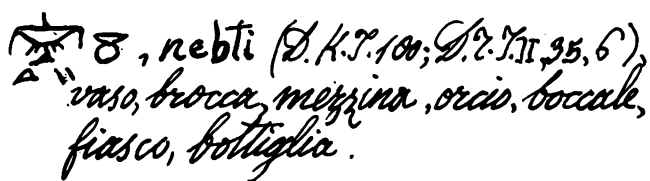 , nebti (D.K.T. 100; D.T.T. II, 35, 6),
vaso, brocca, mezzina, orcio, boccale,
fiasco, bottiglia.